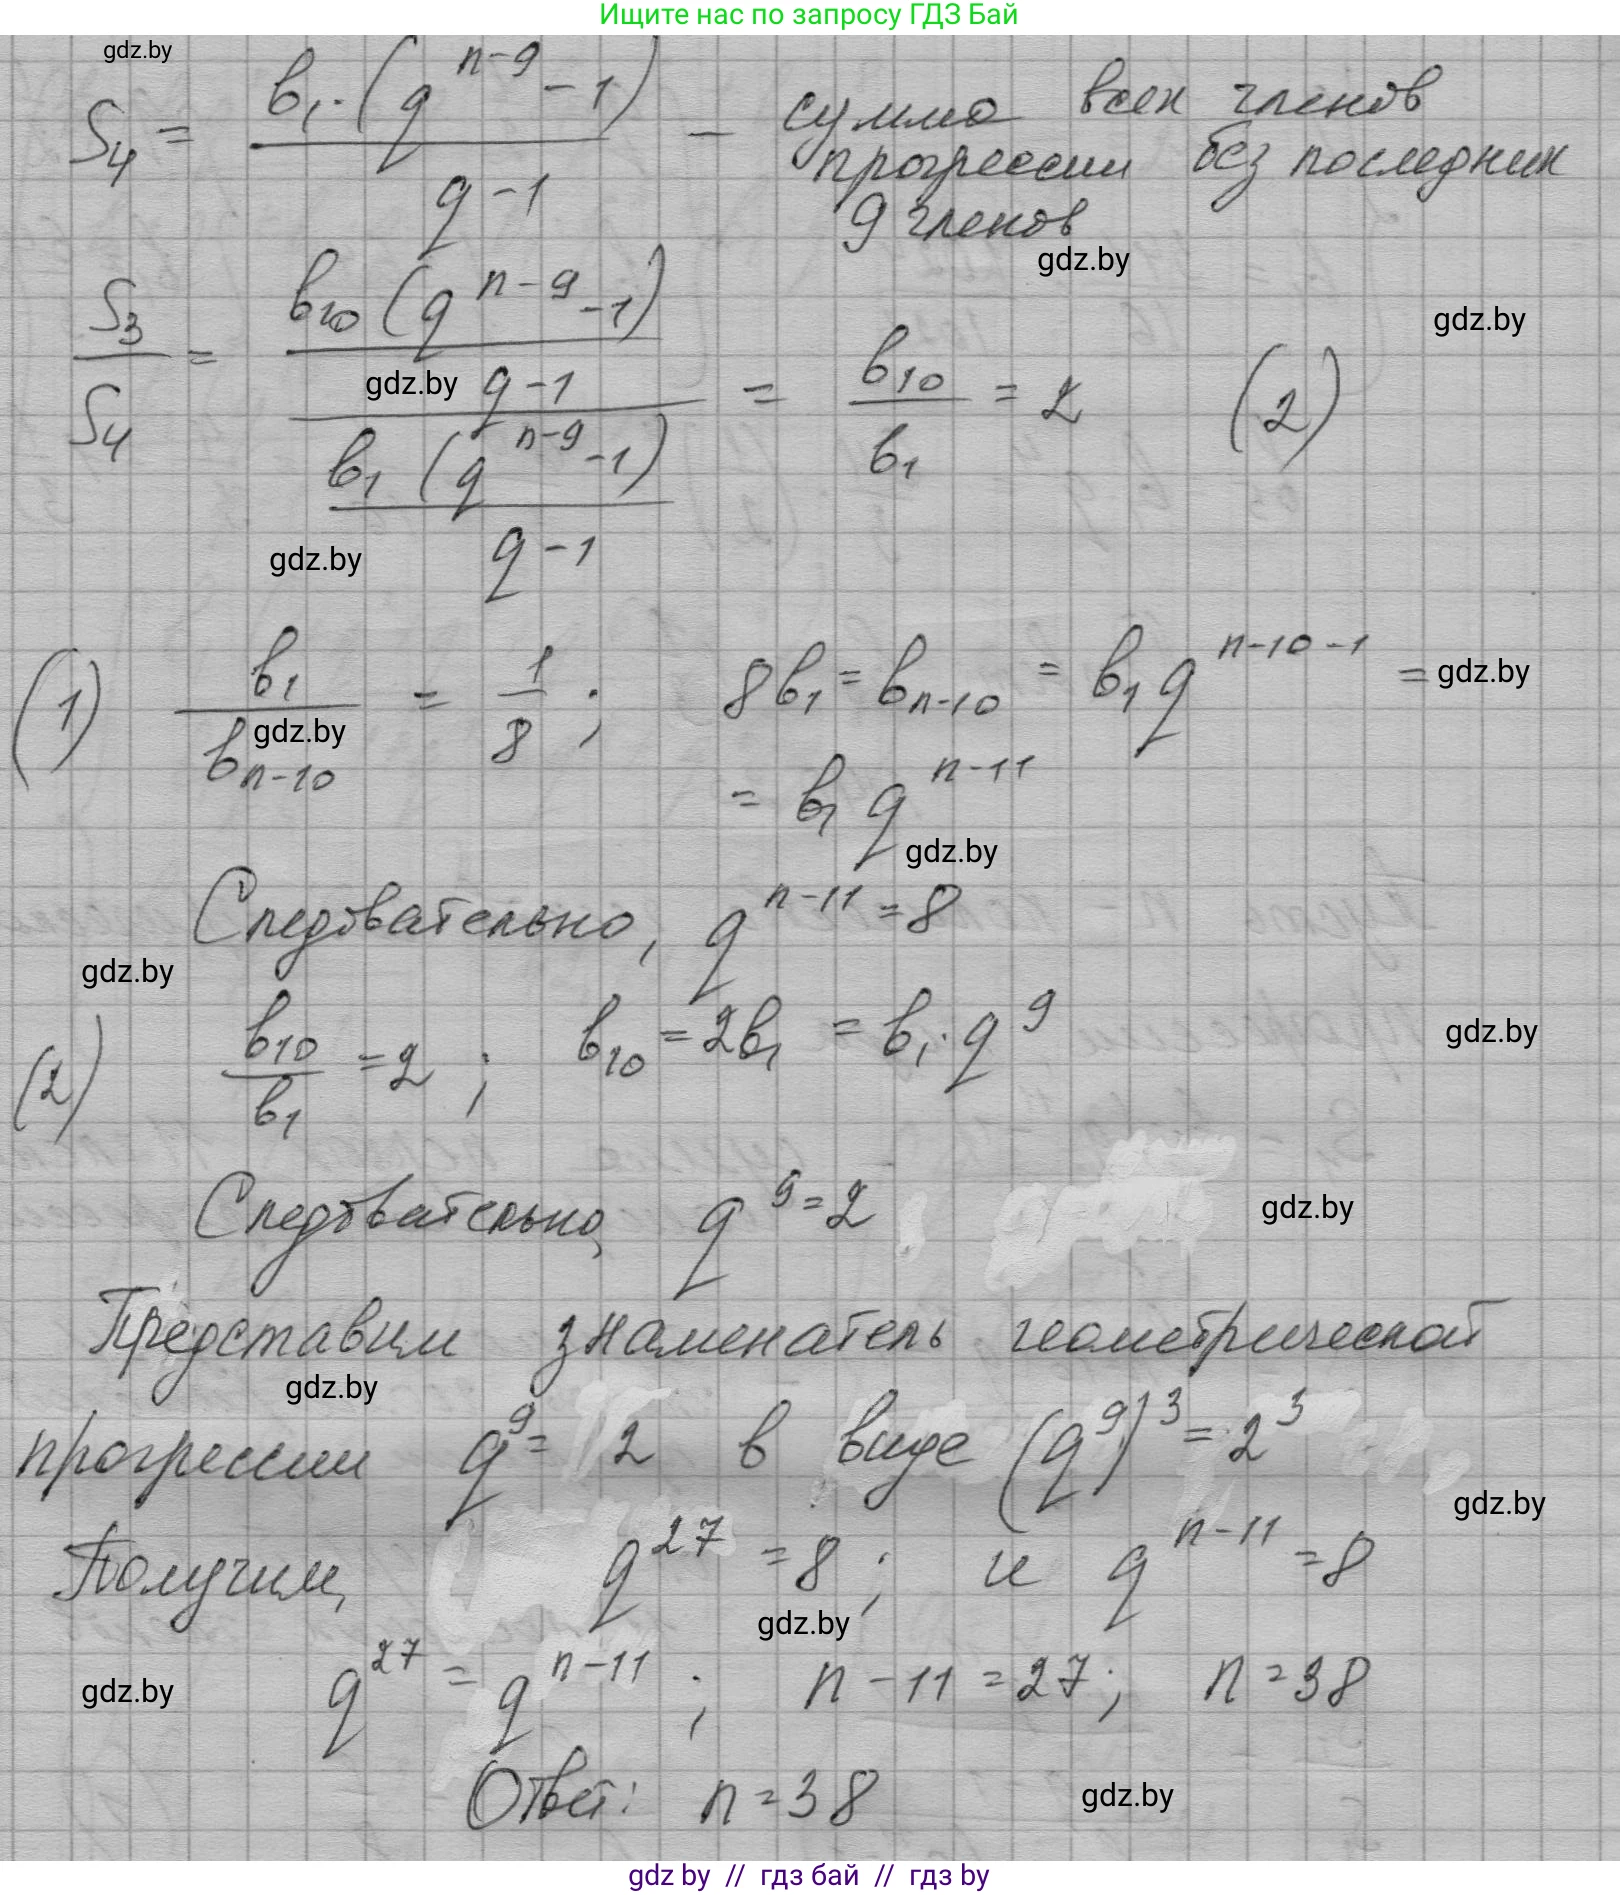 Ищите нас по запросу ГДЗ Бай
gdz.by
S₄ = b₁·(q^(n-9) - 1) / (q - 1) — сумма всех членов
прогрессии без последних
9 членов
gdz.by
gdz.by
S₃/S₄ = (b₁₀(q^(n-9) - 1) / (q - 1)) / (b₁(q^(n-9) - 1) / (q - 1)) = b₁₀/b₁ = 2 (2)
gdz.by
gdz.by
(1) b₁/bₙ₋₁₀ = 1/8 ; 8b₁ = bₙ₋₁₀ = b₁q^(n-10-1) =
gdz.by
gdz.by
= b₁q^(n-11)
gdz.by
Следовательно, q^(n-11) = 8
gdz.by
(2) b₁₀/b₁ = 2 ; b₁₀ = 2b₁ = b₁·q⁹
gdz.by
Следовательно, q⁹ = 2
gdz.by
Представим знаменатель геометрической
gdz.by
прогрессии q⁹ = 2 в виде (q⁹)³ = 2³
gdz.by
Получим, q²⁷ = 8 ; и q^(n-11) = 8
gdz.by
q²⁷ = q^(n-11) ; n - 11 = 27 ; n = 38
gdz.by
Ответ: n = 38
gdz.by
gdz by // гдз бай // гдз by